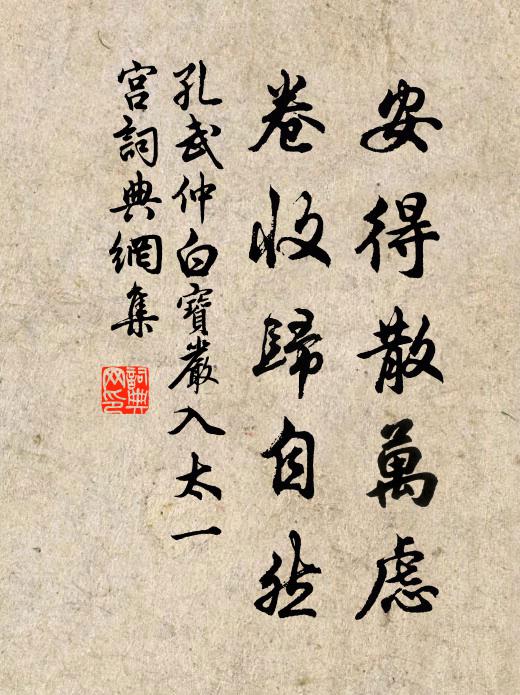 安得散萬慮
卷收歸自然
孔武仲白寶嚴入太一
宮詞典網集
詞典網印